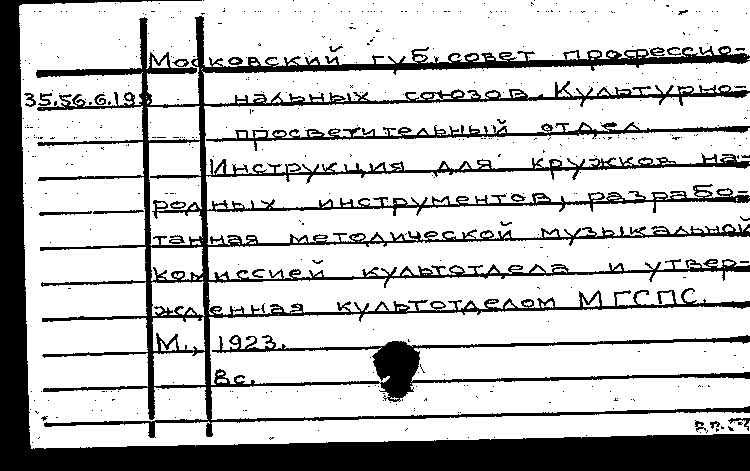 Московский губ. совет профессио-
35.56.6.198 нальных союзов. Культурно-
просветительный отдел.
Инструкция для кружков на-
родных инструментов, разрабо-
танная методической музыкальной
комиссией культотдела и утвер-
жденная культотделом МГСПС.
М., 1923.
8с.